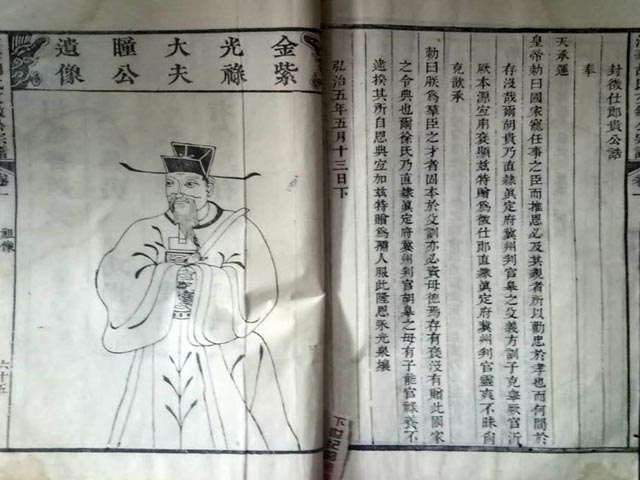 封徵仕郎貴公誥
奉
天承運
皇帝勅曰國家寵任事之臣而推恩必及其親者所以勸忠於孝也而何間於
存沒哉爾胡貴乃直隸眞定府冀州判官皋之父義方訓子克舉厥官沂
厥本源宜用褒顯玆特贈爲徵仕郎直隸眞定府冀州判官靈爽不昧尚
克歆承
勅曰朕爲羣臣之才者固本於父訓亦必資母德焉存有褒沒有贈此國家
之令典也爾徐氏乃直隸眞定府冀州判官胡皋之母有子能官祿養不
逮揆其所自恩典宜加玆特贈爲孺人服此隆恩永光泉壤
弘治五年五月十三日下
金紫
光祿
大夫
瞳公
遺像
公宗譜
卷一
祖像
六十五